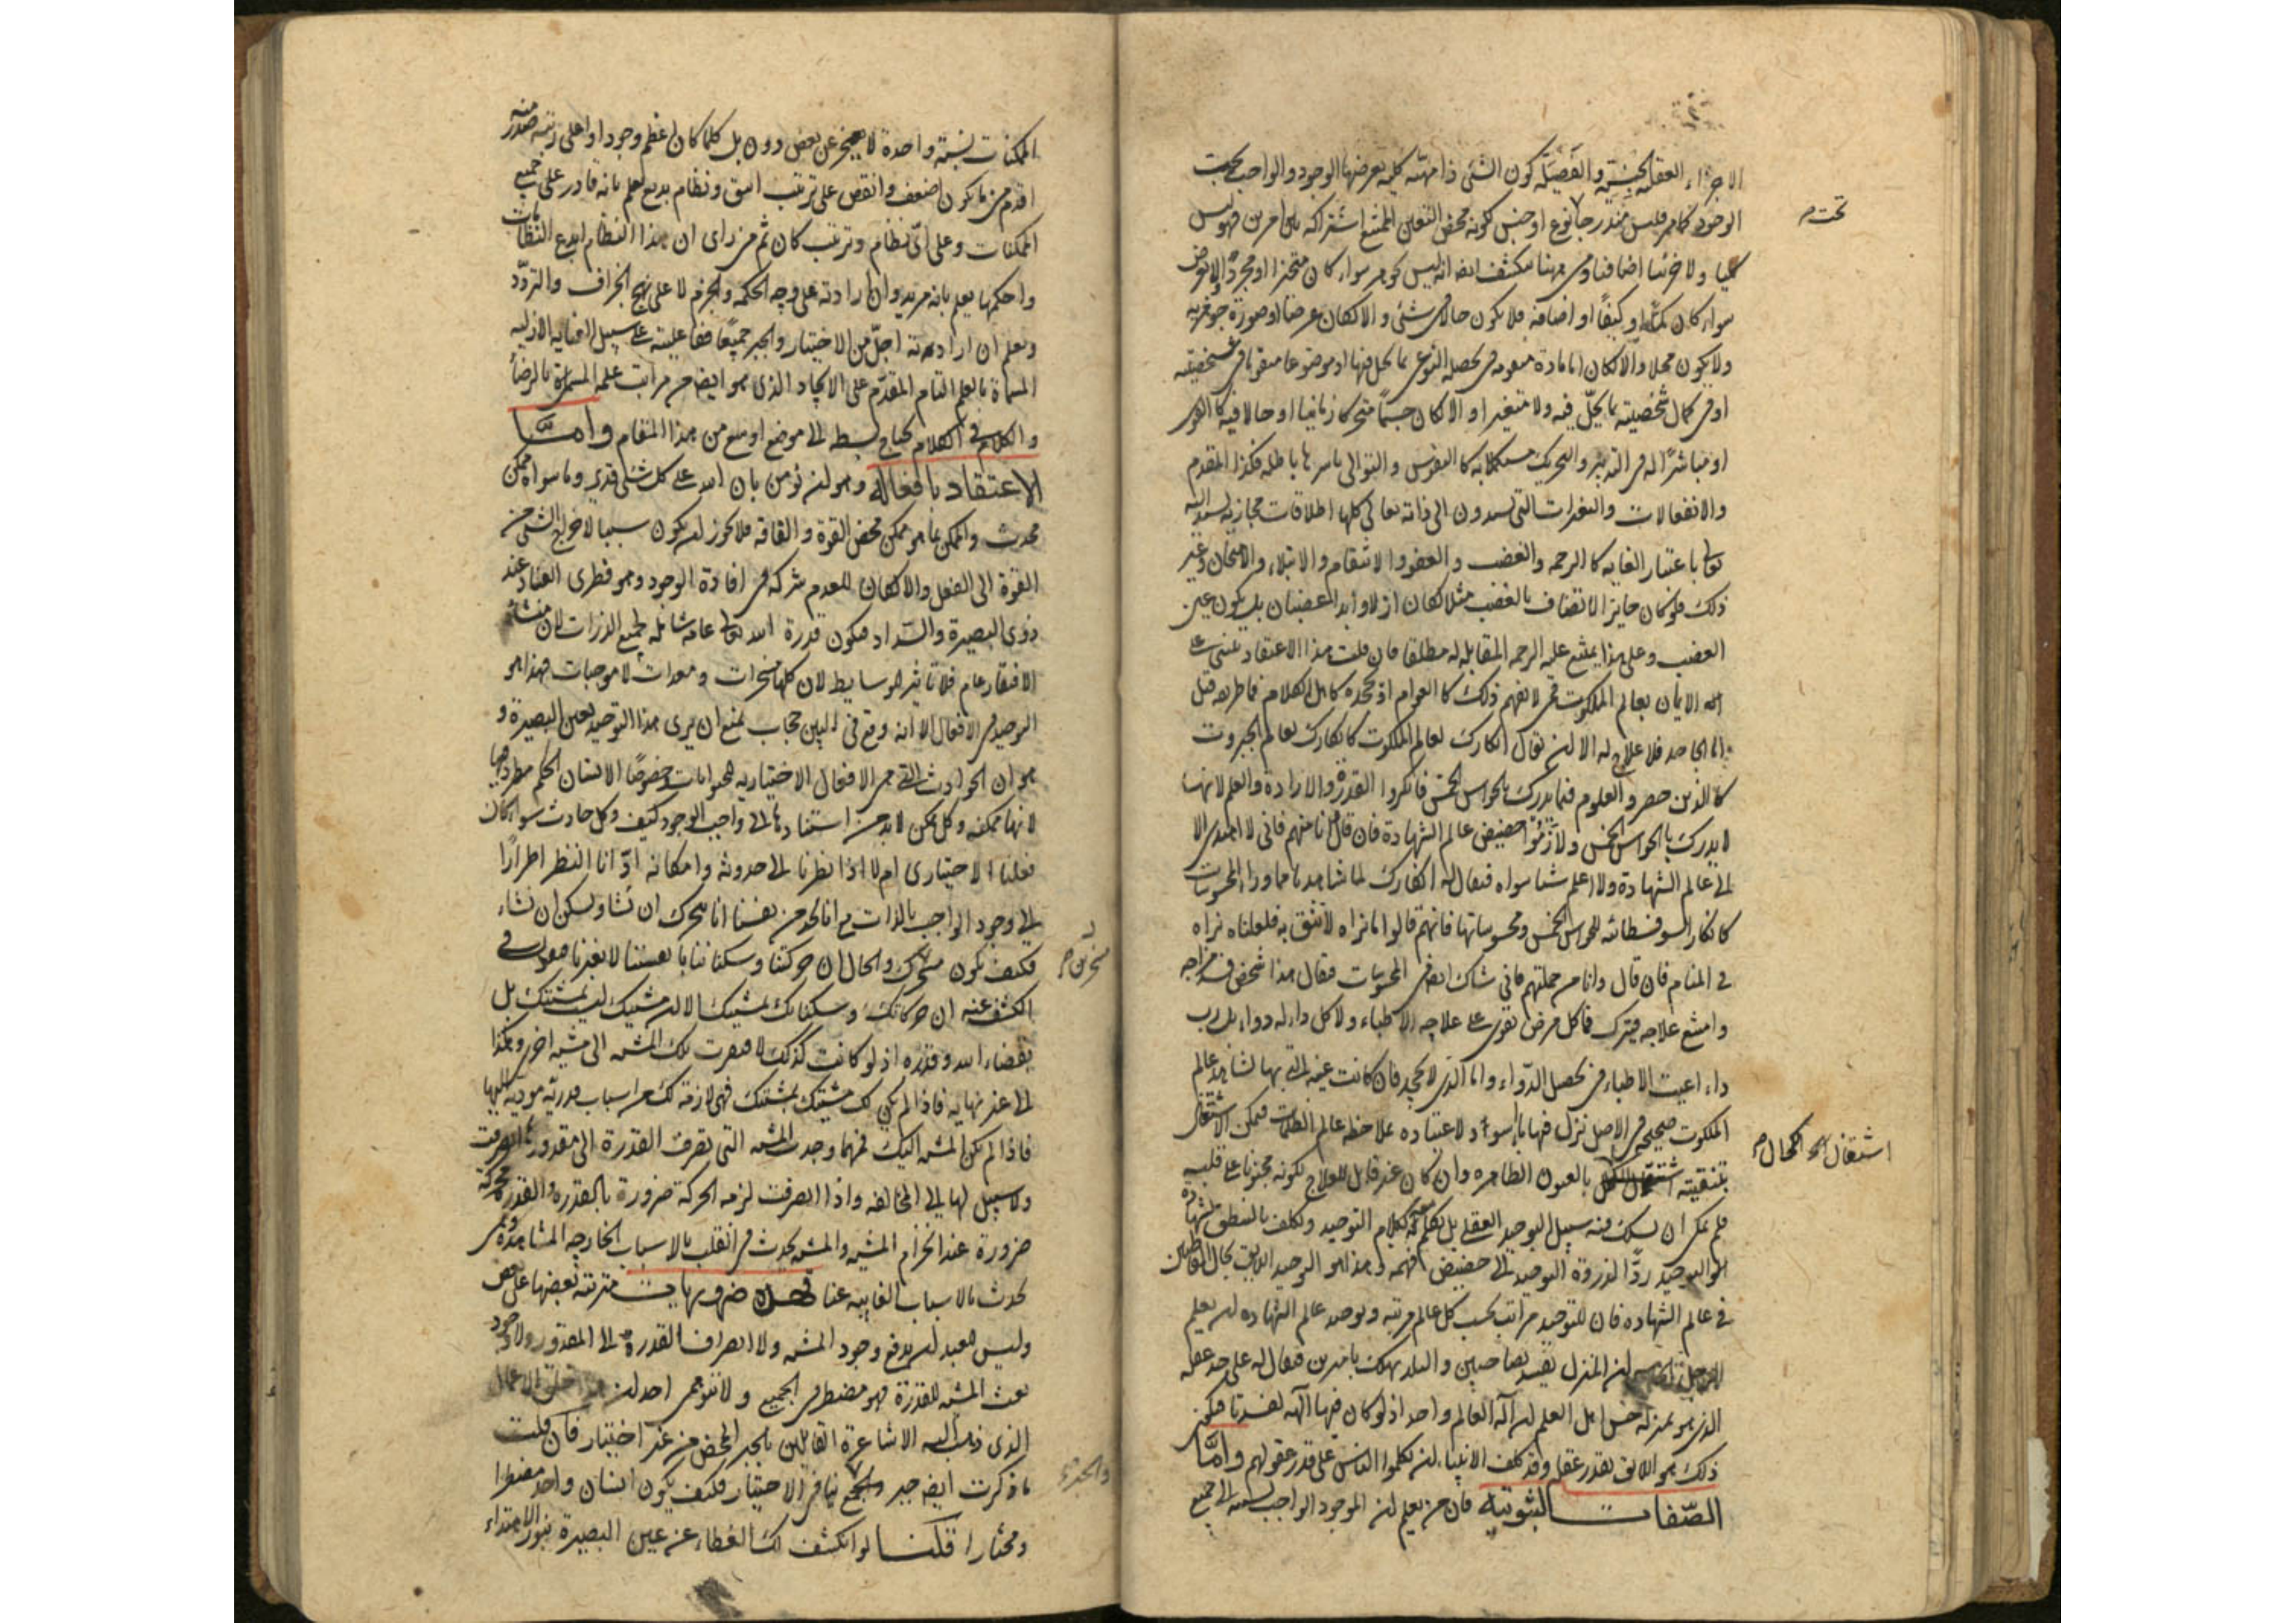 الاجزاء العقلية الجنسية والفصيلة كون الشئ ذا مهية كلية يعرضها الوجود والواجب بحت
الوجود كما مر فليس مندرجا نوع او جنس لكونه محض التعين الممتنع اشتراكه بين امرين فهو ليس
تحت م
كليا ولا جزئيا اضافيا ومن ههنا ينكشف ايضا انه ليس كوهر سواء كان متحيزا او مجردا ولا بعرض
سواء كان كما او كيفا او اضافة فلا يكون حالا فى شئ والا لكان عرضا او صورة جوهرية
ولا يكون محلا والا لكان اما مادة متقومة فى تحصله النوعى بما يحل فيها او موضوعا متقوما فى شخصيته
او فى كمال شخصيته بما يحل فيه ولا متغيرا والا لكان جسما متحركا زمانيا او حالا فيه كالقوى
او مباشرا له فى التدبير والتحريك مستكملا به كالنفوس والتوالى باسرها باطلة فكذا المقدم
والانفعالات والتغيرات التى يسندون الى ذاته تعالى كلها اطلاقات مجازية يسند اليه
تعالى باعتبار الغاية كالرحمة والغضب والعفو والانتقام والابتلاء والامتحان وغير
ذلك فلو كان جايز الاتصاف بالغضب مثلا لكان ازلا وابدا لغضبان بل يكون عين
الغضب وعلى هذا يمتنع عليه الرحمة المقابلة له مطلقا فان قلت هذا الاعتقاد يبتنى على
الايمان بعالم الملكوت فمن لا يفهم ذلك كالعوام او يجحده كاهل الكلام فما طريقه قيل
اما الجاحد فلا علاج له الا ان يقال انكارك لعالم الملكوت كانكارك لعالم الجبروت
كالذين حصروا العلوم فيما يدرك بالحواس الخمس فانكروا القدرة والارادة والعلم لانها
لا يدرك بالحواس الخمس ولازموا حضيض عالم الشهادة فان قال وانا منهم فانى لا اهتدى الا
الى عالم الشهادة ولا اعلم شيئا سواه فيقال له انكارك لما شاهدناه مما وراء المحسوسات
كانكار السوفسطائية للحواس الخمس ومحسوساتها فانهم قالوا ما نراه لا نثق به فلعلنا نراه
فى المنام فان قال وانا من جملتهم فانى شاك ايضا فى المحسوسات فيقال هذا شخص فسد مزاجه
وامتنع علاجه فيترك فما كل مرض يقوى على علاجه الاطباء ولا كل داء له دواء بل رب
داء اعيت الاطباء فى تحصيل الدواء واما الذى لا يجحد فان كانت عينه التى بها يشاهد عالم
الملكوت صحيحة فى الاصل نزل فيها ماء اسود لاعتياده بملاحظة عالم الظلمات فيمكن الاشتغال
بتنقيته اشتغال الكحال بالعيون الظاهرة وان كان غير قابل للعلاج لكونه مختوما على قلبه
اشتغال الكحال م
فلم يمكن ان يسلك فيه سبيل التوحيد العقلى بل يكلم معه بكلام التوحيد ويكلف بالنطق بشهادة
التوحيد ردا لذروة التوحيد الى حضيض فهمه وهذا هو التوحيد اللايق بحال القاطنين
فى عالم الشهادة فان للتوحيد مراتب بحسب كل عالم مرتبة وتوحيد عالم الشهادة ان يعلم
ان المنزل يفسد بصاحبين والبلد يهلك باميرين فيقال له على حد عقله
الذى هو بمنزلة حس اهل العلم ان اله العالم واحد اذ لو كان فيهما آلهة لفسدتا فيكون
ذلك هو اللايق بقدر عقله وقد كلف الانبياء ان يكلموا الناس على قدر عقولهم وامّا
الصّفات الثبوتية فان من يعلم ان الموجود الواجب نسبته الى جميع
الممكنات نسبة واحدة لا يعجز عن بعض دون بل كلما كان اعظم وجودا واعلى رتبة صدوره منه
اقدم من ما يكون اضعف وانقص على ترتيب انيق ونظام بديع يعلم بانه قادر على جميع
الممكنات وعلى اىّ نظام وترتيب كان ثم من راى ان هذا النظام ابدع النظامات
واحكمها يعلم بانه مريد وان ارادته على وجه الحكمة والجزم لا على نهج الجزاف والتردّد
ويعلم ان ارادته اجلّ من الاختيار والجبر جميعا ففاعليته على سبيل العناية الازلية
المسماة بالعلم التام المقدّم على الايجاد الذى هو ايضا من مراتب علمه المسماة بالرضا
والكلام فى الكلام يحتاج بسطه الى موضع اوسع من هذا المقام وامّا
الاعتقاد بافعاله وهو ان يؤمن بان الله على كل شئ قدير وما سواه ممكن
محدث والممكن بما هو ممكن محض القوة والفاقة فلا يجوز ان يكون سببا لاخراج الشئ من
القوة الى الفعل والا لكان للعدم شركة فى افادة الوجود وهو فطرى الفساد عند
ذوى البصيرة والسّداد فيكون قدرة الله تعالى عامة شاملة لجميع الذرات لان منشاء
الافتقار عام فلا تاثير للوسايط لان كلها مسخرات ومعدات لا موجبات فهذا هو
التوحيد فى الافعال الا انه وقع فى البين حجاب يمنع ان يرى هذا التوحيد بعين البصيرة و
هو ان الحوادث التى هى الافعال الاختيارية للحيوانات خصوصا الانسان الحكم مطرد فيها
لانها ممكنة وكل ممكن لا بد من استناده الى واجب الوجود كيف وكل حادث سواء كان
فعلنا الاختيارى ام لا اذا نظرنا الى حدوثه وامكانه ادّانا النظر اطرارا
الى وجود الواجب بالذات مع انا نجد من نفسنا انا نتحرك ان نشاء ونسكن ان نشاء
فكيف يكون متحرك والحال ان حركتنا وسكناتنا بانفسنا لا بغيرنا فيقول فى
مسخرين م
الكشف عنه ان حركاتك وسكناتك بمشيتك الا ان مشيتك ليست بمشيتك بل
بقضاء الله وقدره اذ لو كانت كذلك لافتقرت تلك المشية الى مشية اخرى وهكذا
الى غير نهاية فاذا لم يكن لك مشيتك بمشيتك فهى لازمة لك من اسباب قدرية مودية اليها
فاذا لم تكن المشية اليك فمهما وجدت المشية التى تصرف القدرة الى مقدورها انصرفت
ولا سبيل لها الى المخالفة واذا انصرفت لزمه الحركة ضرورة بالقدرة والقدرة محركة
ضرورة عند انجزام المشية والمشية تحدث فى القلب بالاسباب الخارجة المشاهدة وهى
تحدث بالاسباب الغايبة عنا ضروريات مترتبة بعضها على بعض
وليس للعبد ان يدفع وجود المشية ولا انصراف القدرة الى المقدور ولا وجود
بعث المشية للقدرة فهو مضطر فى الجميع ولا يتوهمن احد ان
الذى ذهب اليه الاشاعرة القايلين بالجبر المحض من غير اختيار فان قلت
ما ذكرت ايضا جبر والجبر ينافى الاختيار فكيف يكون انسان واحد مضطرا
والجبر م
ومختارا قلنا لو انكشف لك الغطاء عن عين البصيرة بنور الاهتداء